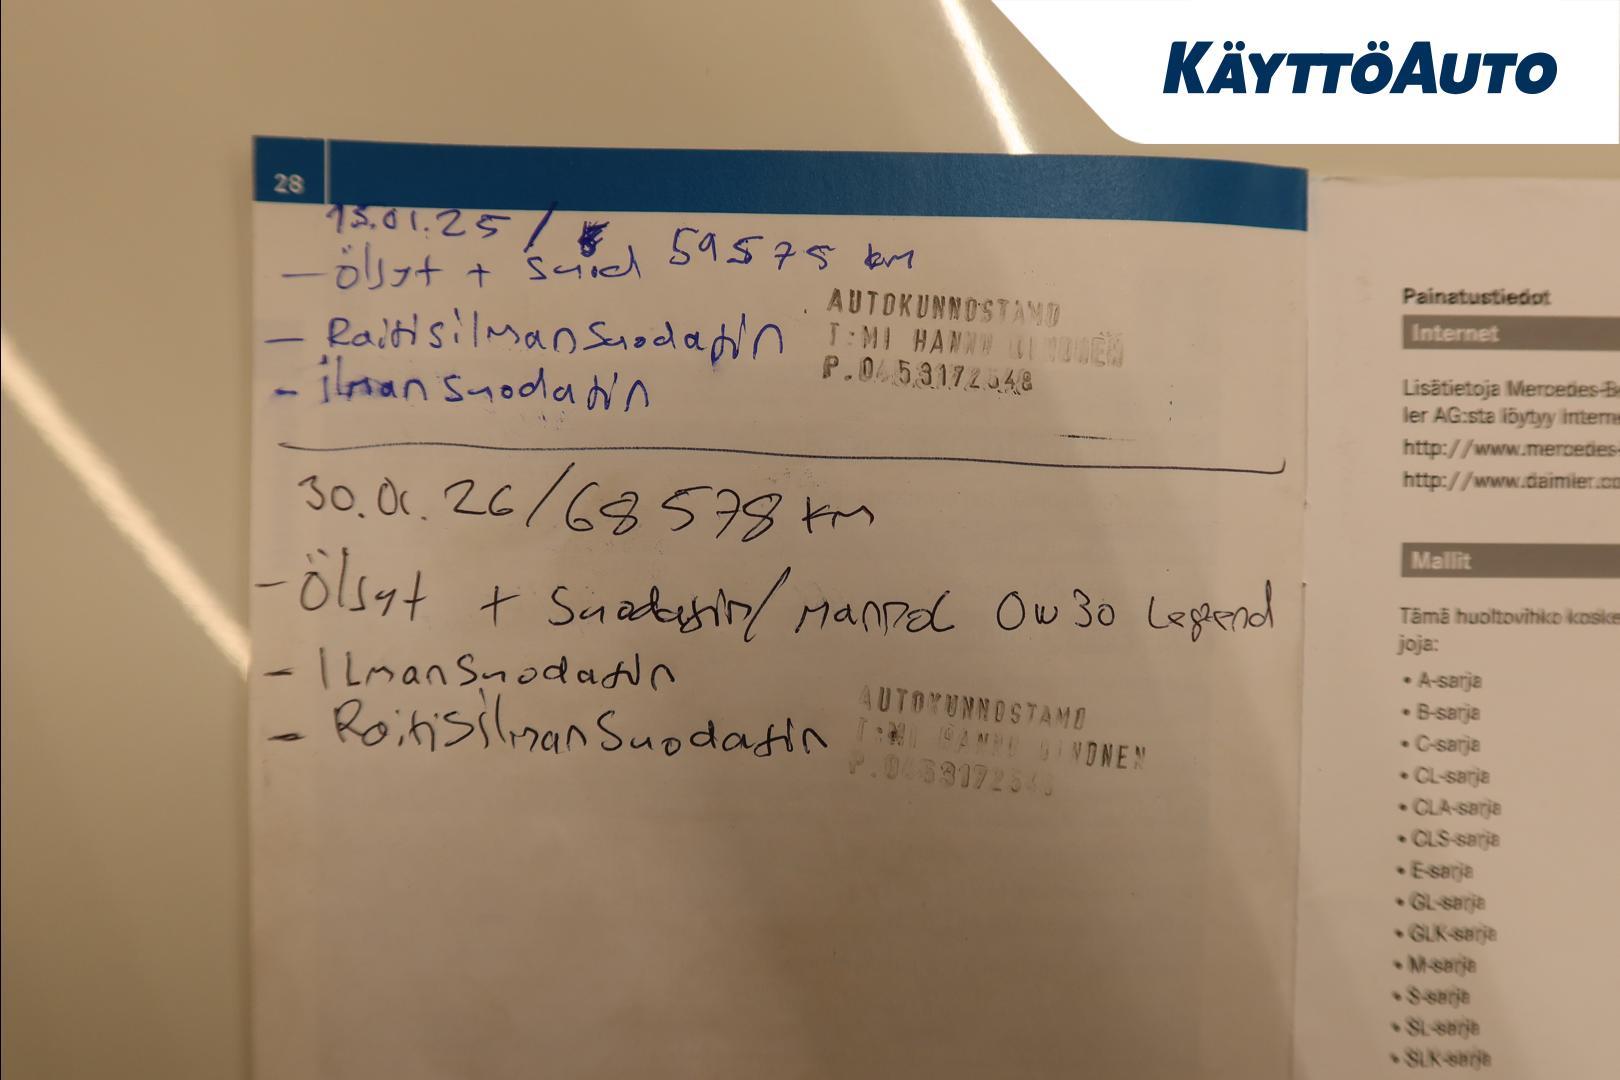 KÄYTTÖAUTO
28
15.01.25 / 59575 km
- Öljyt + suod
- Raitisilmansuodatin
- ilmansuodatin
AUTOKUNNOSTAMO
T:MI HANNU
P.0453172548
30.01.26/68 578 km
- Öljyt + Suodatin/ Mannol 0w30 Legend
- Ilmansuodatin
- Raitisilmansuodatin
AUTOKUNNOSTAMO
T:MI HANNU
Painatustiedot
Internet
Lisätietoja Mercedes-B
ler AG:sta löytyy Intern
http://www.mercedes-
http://www.daimler.co
Mallit
Tämä huoltovihko koske
joja:
• A-sarja
• B-sarja
• C-sarja
• CL-sarja
• CLA-sarja
• CLS-sarja
• E-sarja
• GL-sarja
• GLK-sarja
• M-sarja
• S-sarja
• SL-sarja
• SLK-sarja